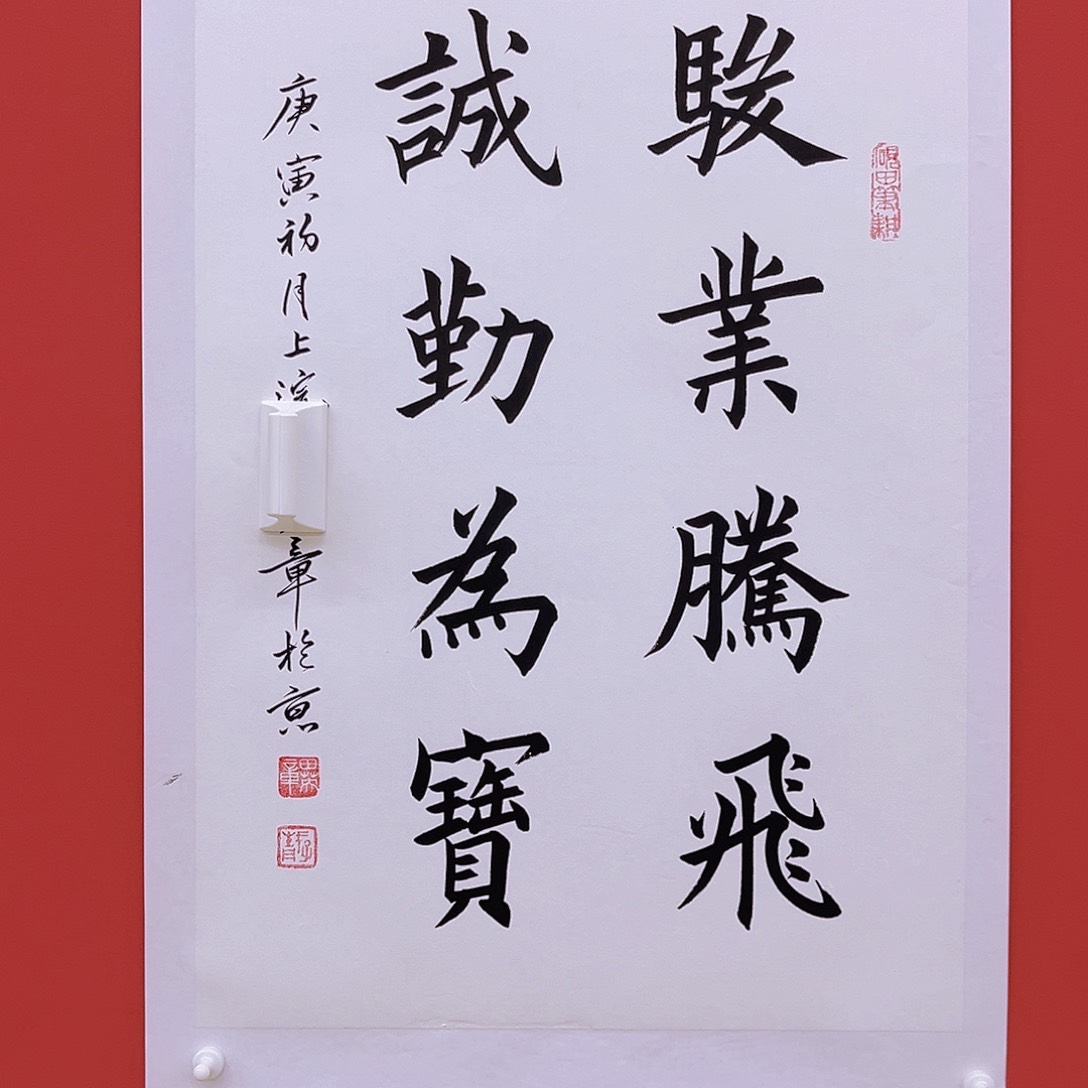 駿業騰飛
誠勤為寶
庚寅初月上浣
章於京
硯田筆耕